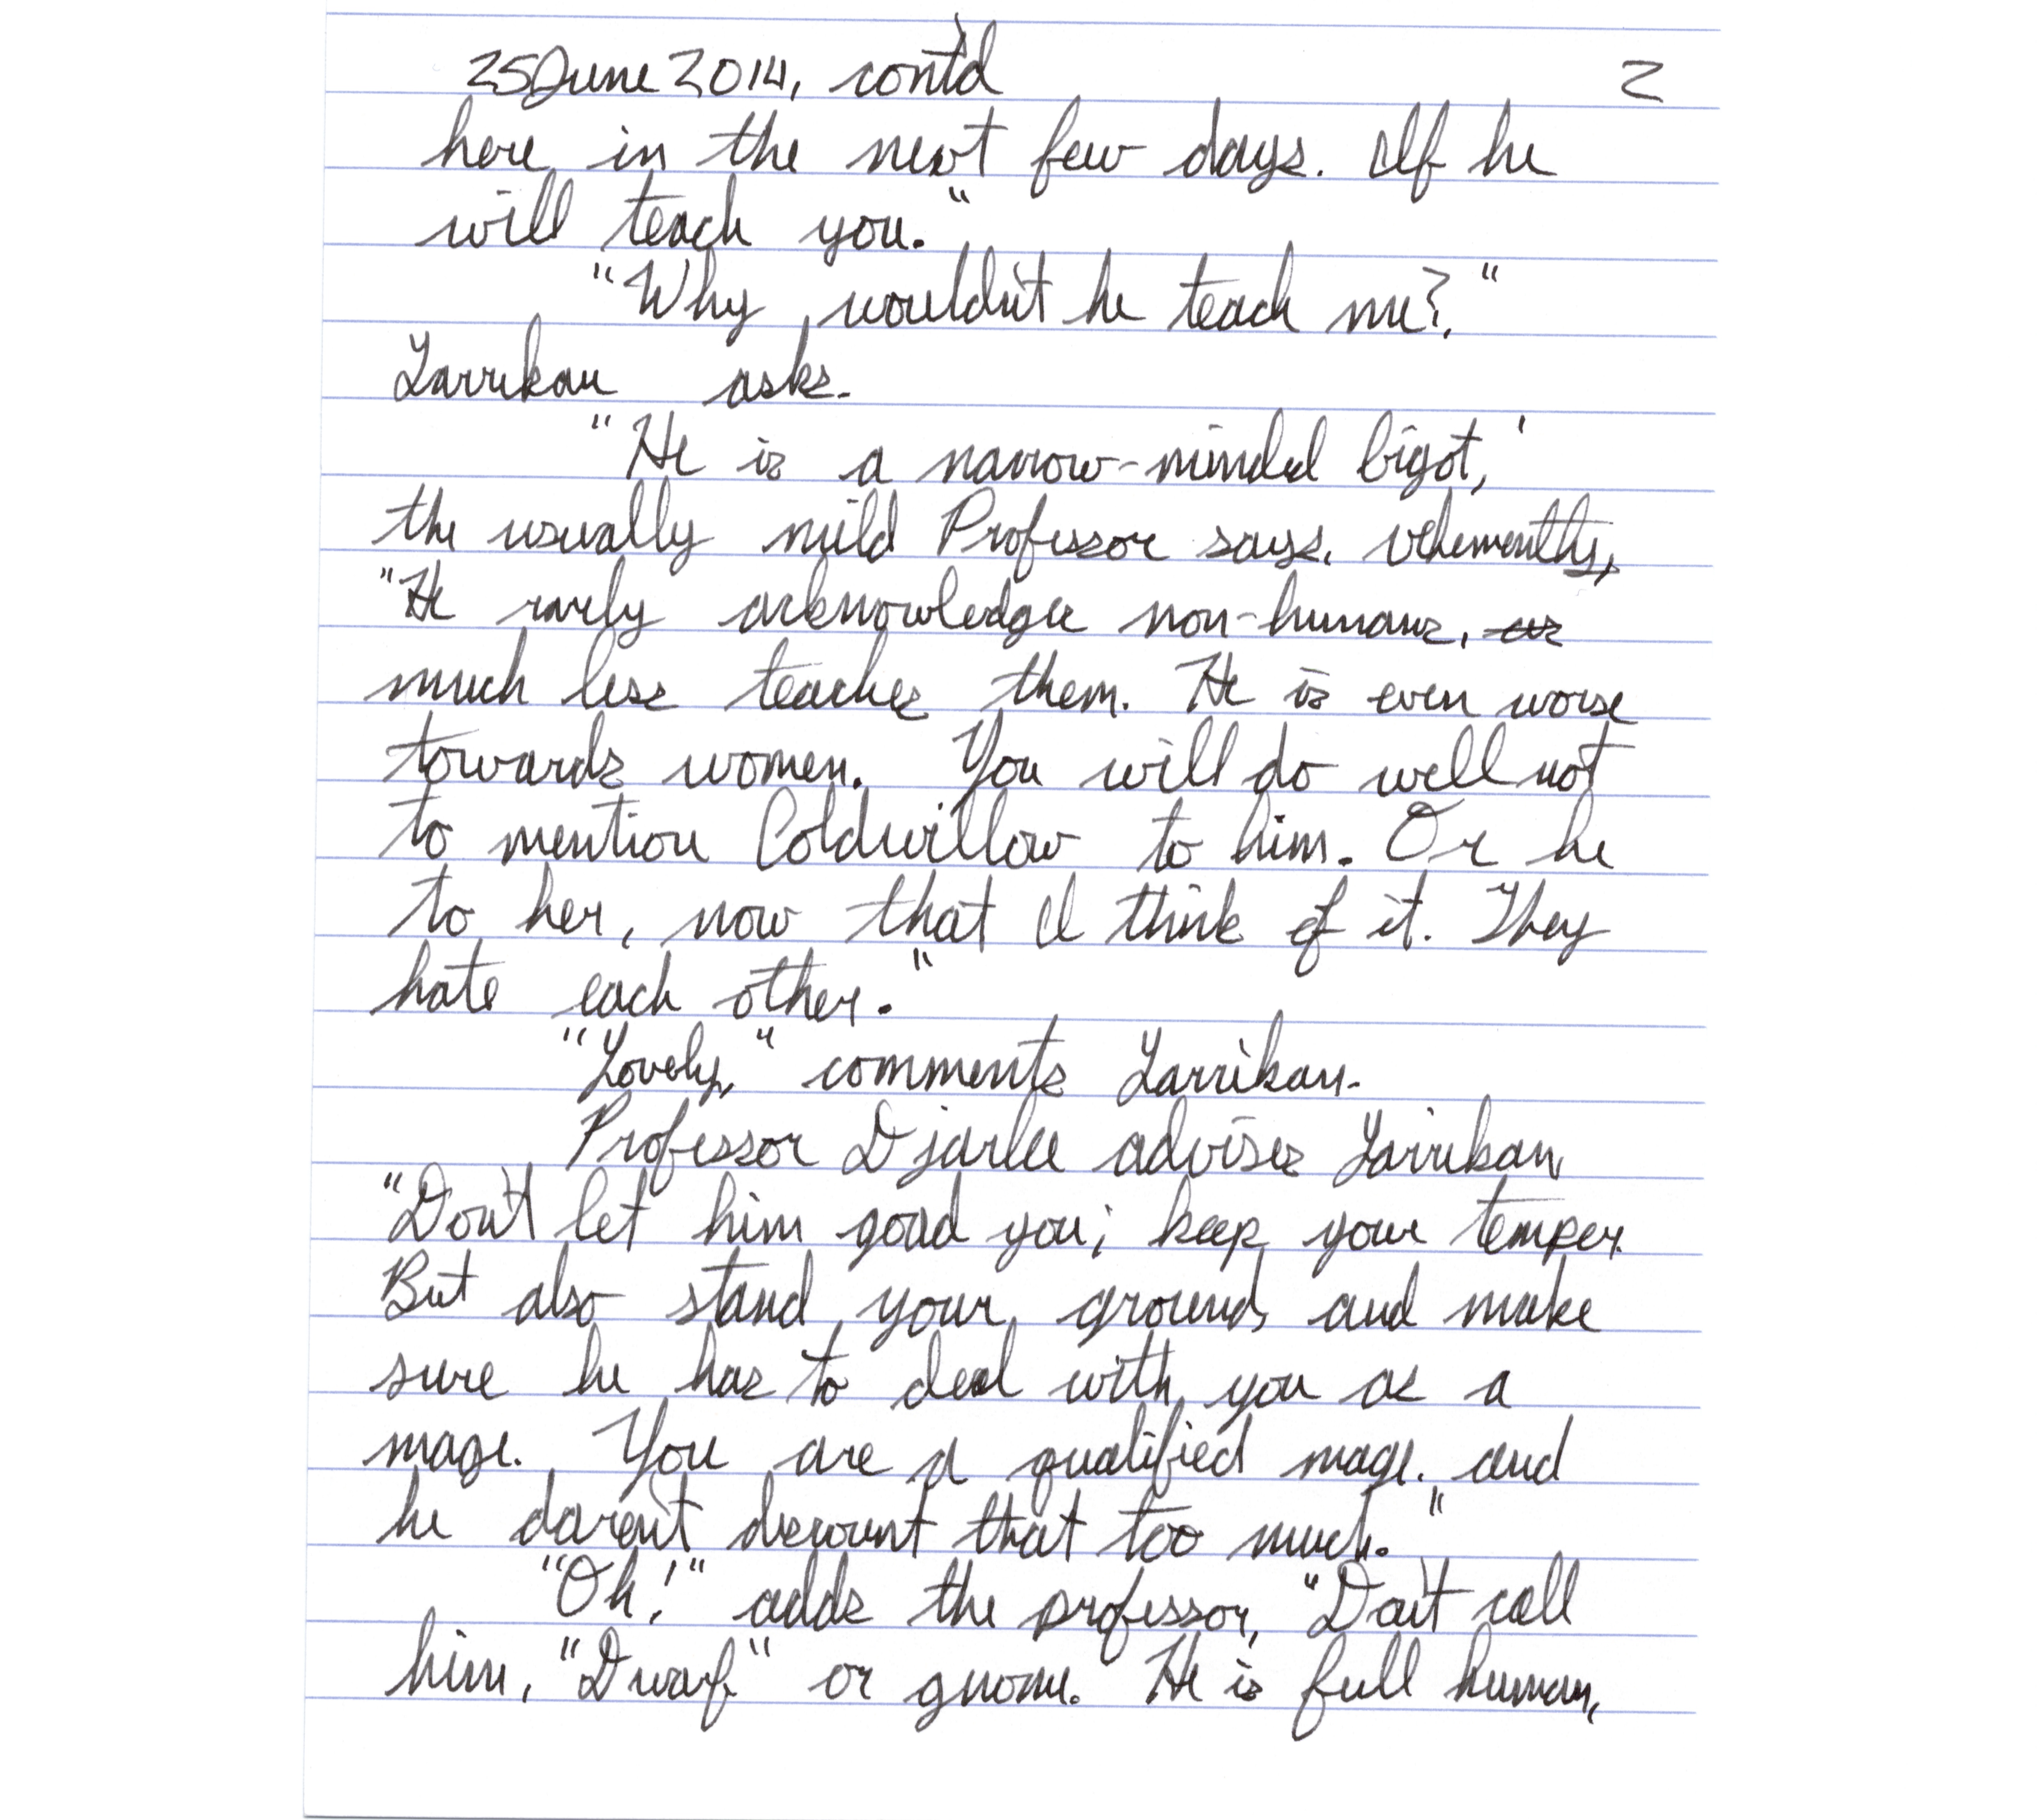 25 June 2014, cont'd 2
here in the next few days. If he
will teach you."
"Why wouldn't he teach me?"
Larrikan asks.
"He is a narrow-minded bigot,'
the usually mild Professor says, vehemently,
"He rarely acknowledges non-humans, or
much less teaches them. He is even worse
towards women. You will do well not
to mention Coldwillow to him. Or he
to her, now that I think of it. They
hate each other."
"Lovely," comments Larrikan.
Professor Djarlee advises Larrikan,
"Don't let him goad you; keep your temper.
But also stand your ground, and make
sure he has to deal with you as a
mage. You are a qualified mage, and
he daren't discount that too much."
"Oh!" adds the professor, "Don't call
him, "Dwarf" or gnome. He is full human,